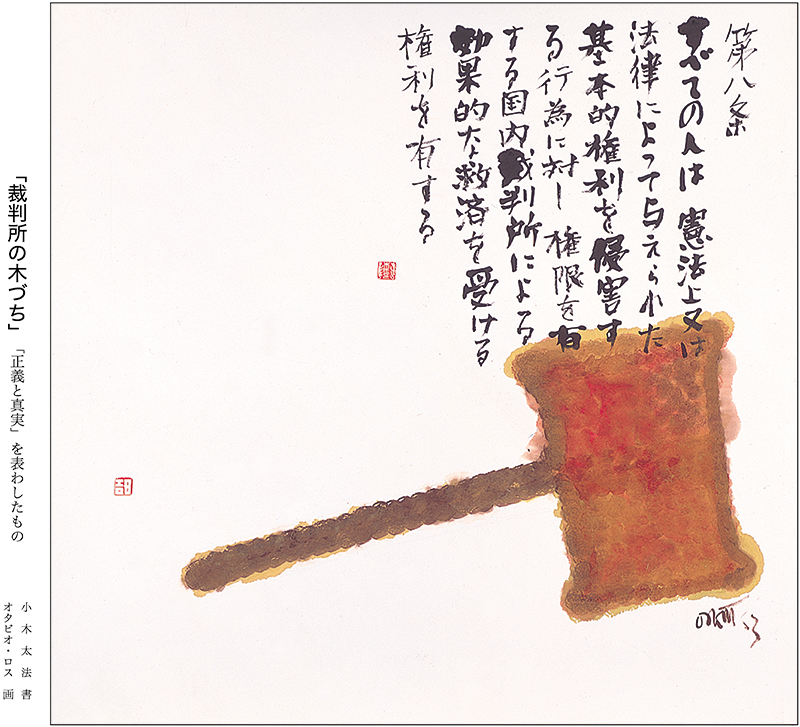 第八条
すべての人は 憲法上又は
法律によって与えられた
基本的権利を侵害す
る行為に対し 権限を有
する国内裁判所による
効果的な救済を受ける
権利を有する
「裁判所の木づち」 「正義と真実」を表わしたもの
小木太法 書
オタビオ・ロス 画